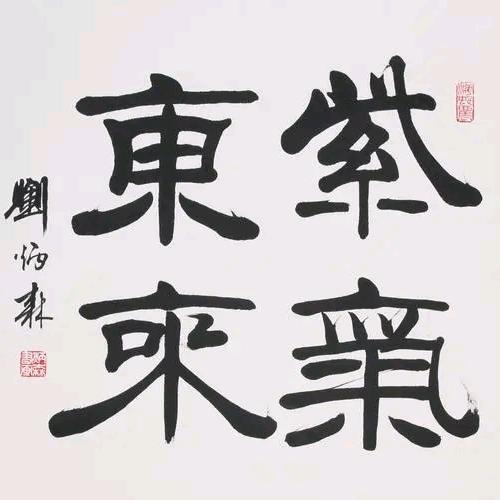 紫氣
東來
劉炳森